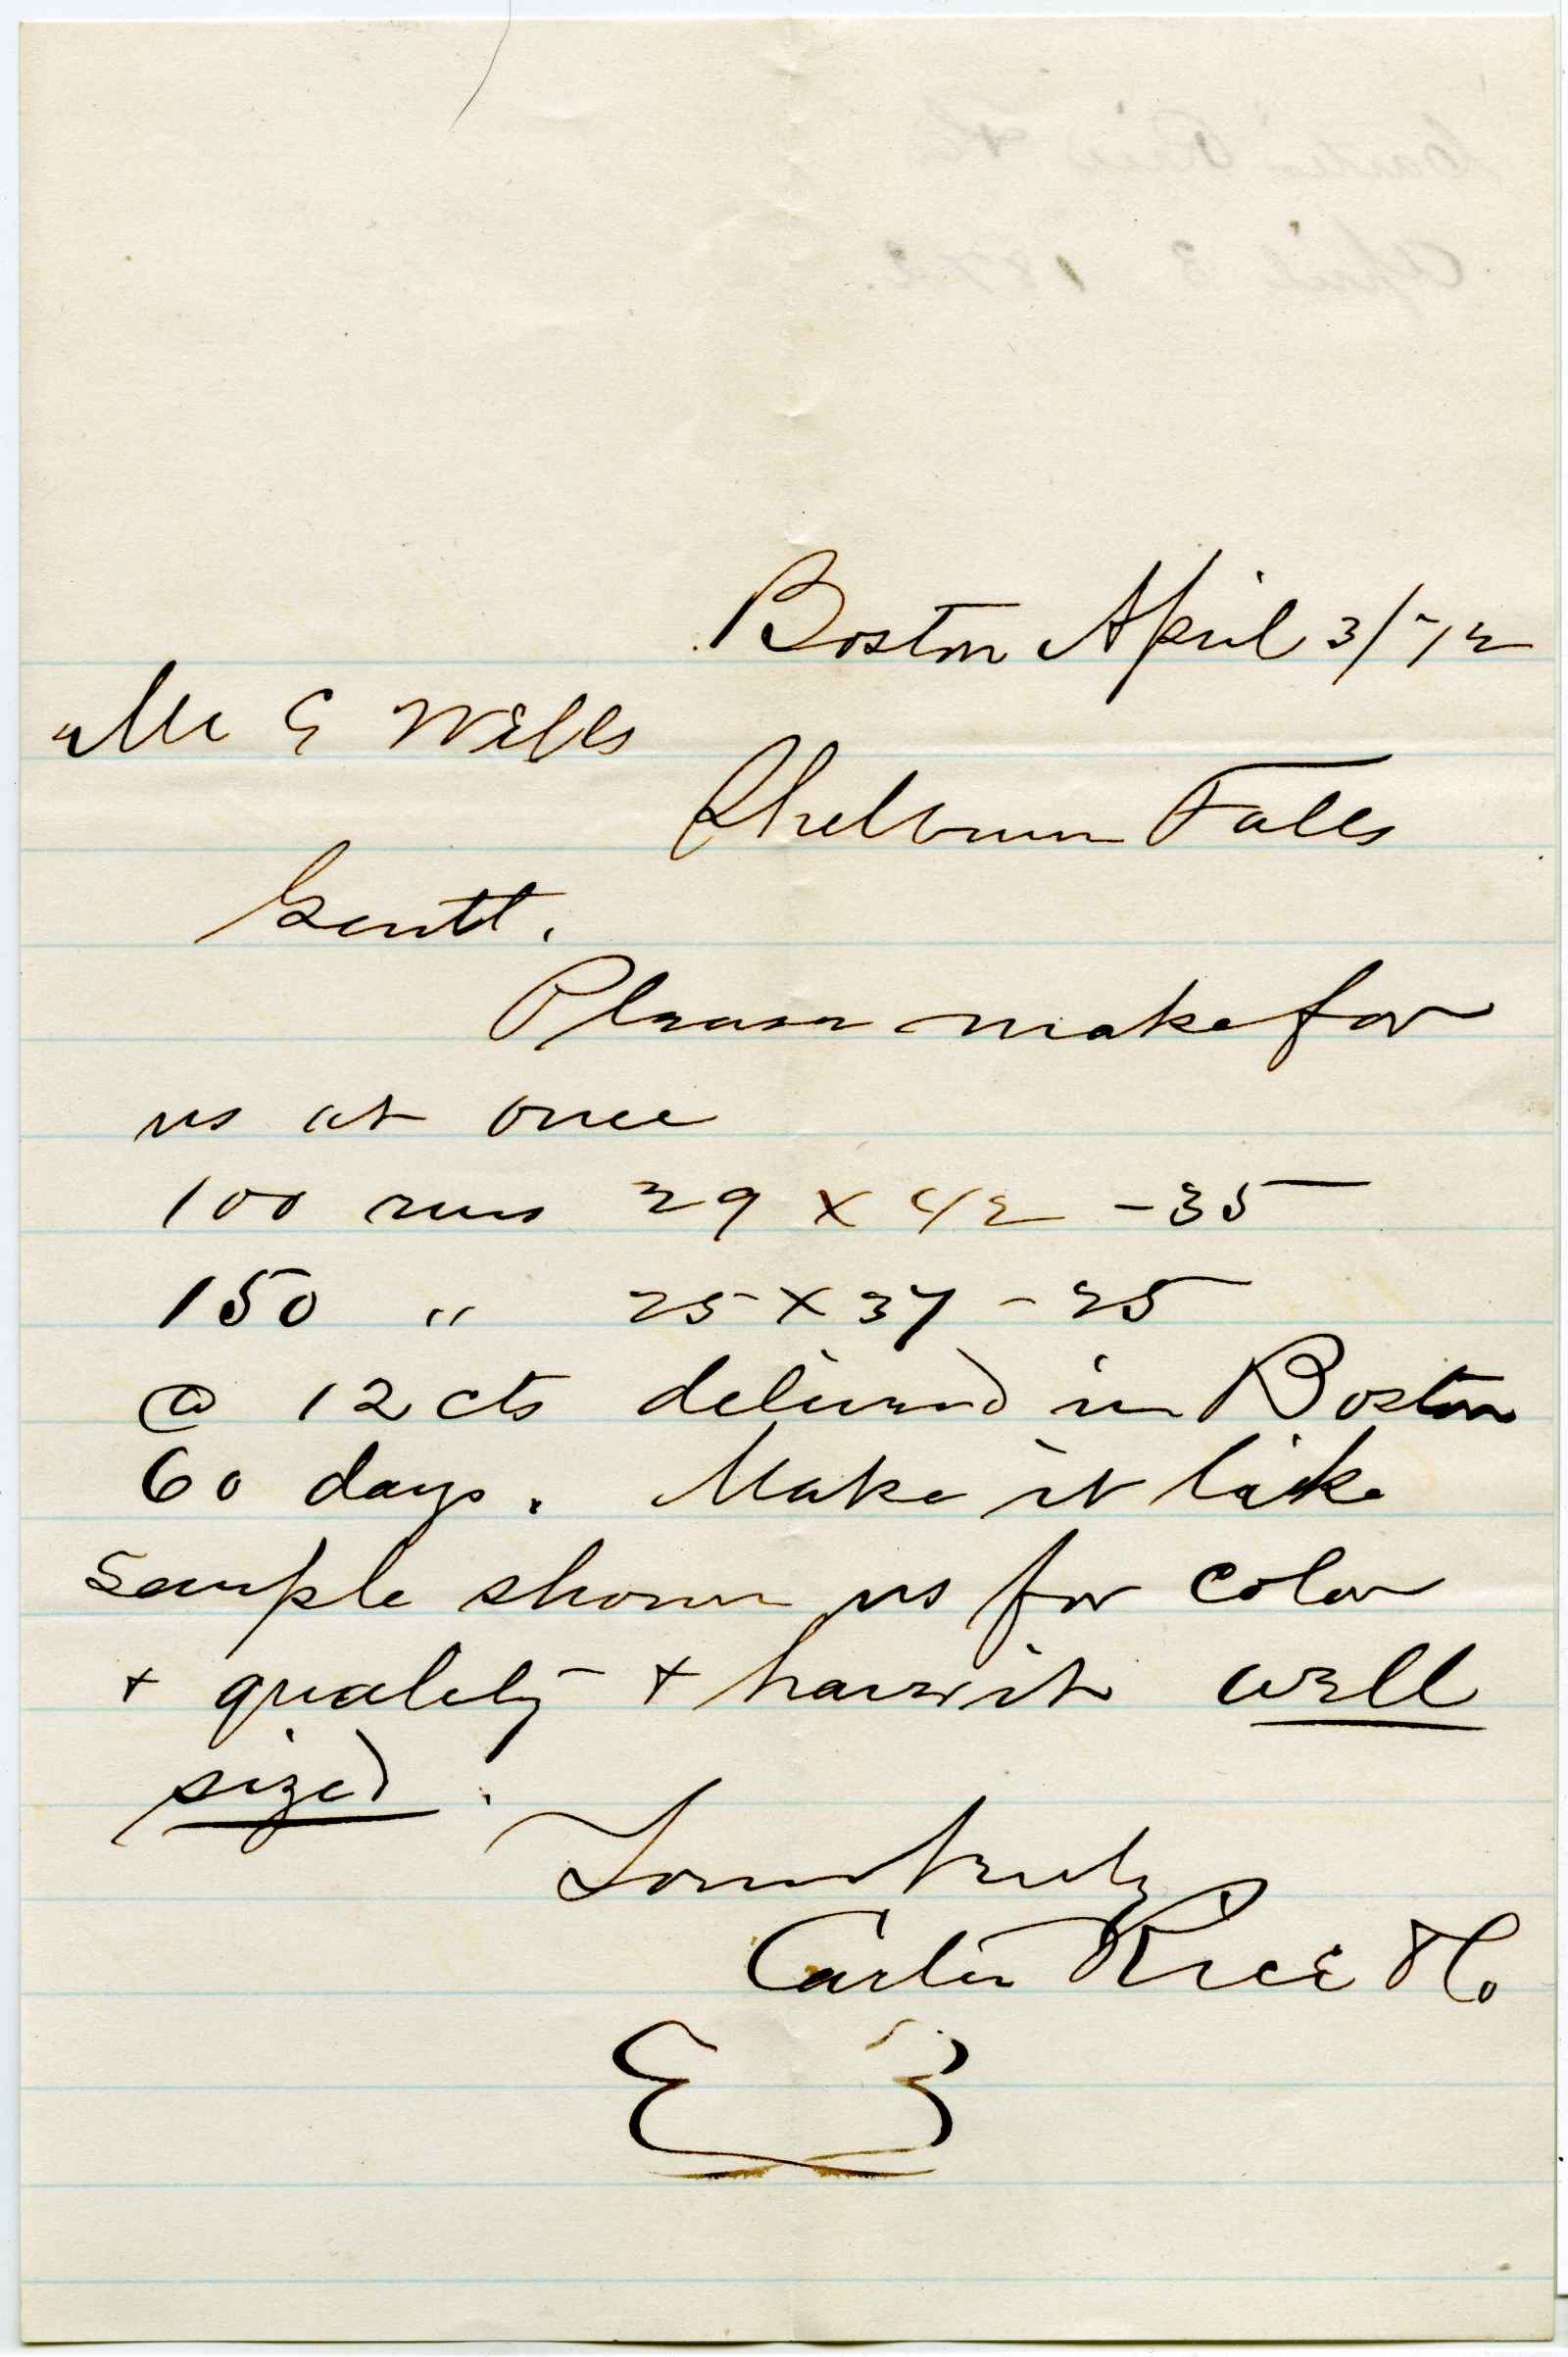 Carter Rice & Co
April 3 1872.
Boston April 3/72
Mr E Wells
Shelburn Falls
Gentl.
Please make for
us at once
100 rms 29 x 42 - 35
150 " 25 x 37 - 25
@ 12 cts delivered in Boston
60 days. Make it like
sample shown us for color
+ quality + have it well
sized.
Yours truly
Carter Rice & Co